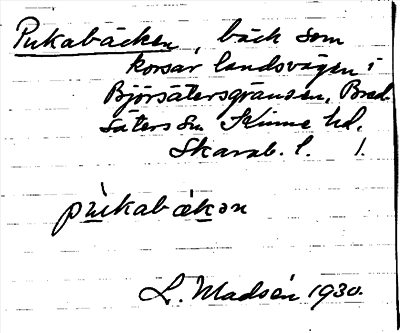 Pukabäcken, bäck som
korsar landsvägen i
Björsätersgränsen, Bred-
säters sn. Kinne hd.
Skarab. l. 1.
pukabäkən
L. Madsén 1930.